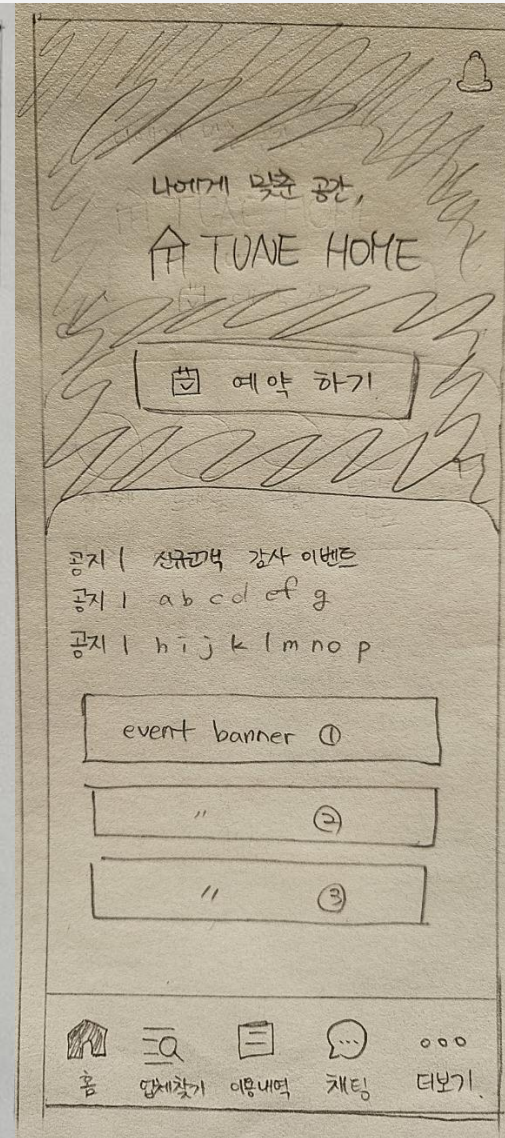 나에게 맞춘 공간,
TUNE HOME
예약 하기
공지 | 신규고객 감사 이벤트
공지 | a b c d e f g
공지 | h i j k l m n o p
event banner ①
〃 ②
〃 ③
홈 업체찾기 이용내역 채팅 더보기.